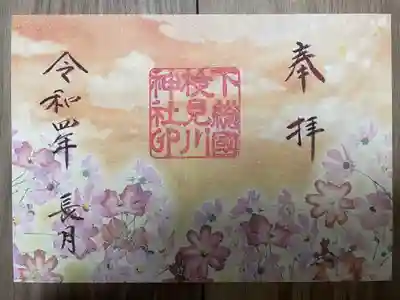 奉拝
下総国
検見川
神社印
令和四年 長月